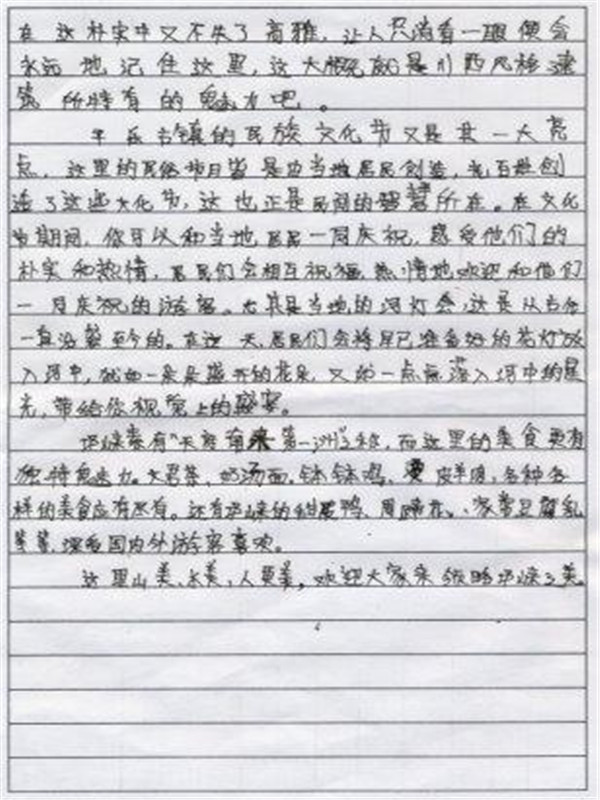 在这朴实中又不失了高雅，让人只消看一眼便会
永远地记住这里，这大概就是川西风格建
筑所特有的魅力吧。
平乐古镇的民族文化节又是其一大亮
点，这里的民俗节目皆是由当地居民创造，老百姓创
造了这些文化节，这也正是民间的智慧所在。在文化
节期间，你可以和当地居民一同庆祝，感受他们的
朴实和热情，居民们会相互祝福，热情地欢迎和他们
一同庆祝的游客。尤其是当地的河灯会，这是从古代
一直沿袭至今的。在这一天，居民们会将早已准备好的花灯放
入河中，犹如一朵朵盛开的花朵，又如一点点落入河中的星
光，带给你视觉上的盛宴。
邛崃素有"天府南来第一州"之称，而这里的美食更有
独特魅力。大碗茶，奶汤面，钵钵鸡，各种各
样的美食应有尽有。还有邛崃的甜皮鸭、周蹄花、家常豆腐乳
等等，深受国内外游客喜欢。
这里山美、水美、人更美，欢迎大家来领略邛崃之美。